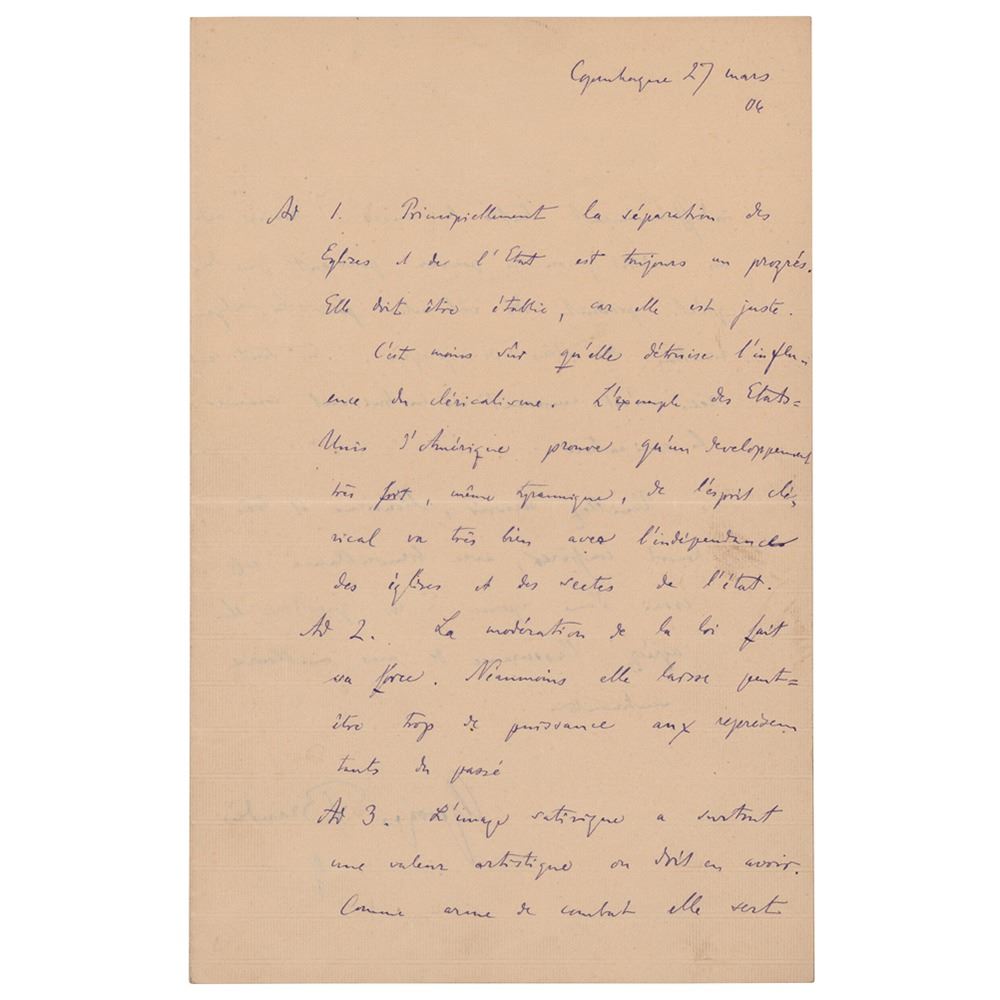 Copenhague 27 mars
04
Ad 1. Principiellement la séparation des
Eglises et de l'Etat est toujours un progrés.
Elle doit être établie, car elle est juste.
C'est moins sûr qu'elle détruise l'influ-
ence du cléricalisme. L'exemple des Etats=
Unis d'Amérique prouve qu'un developpement
très fort, même tyrannique, de l'esprit clé-
rical va très bien avec l'indépendance
des églises et des sectes de l'état.
Ad 2. La modération de la loi fait
sa force. Néanmoins elle laisse peut=
être trop de puissance aux représen
tants du passé
Ad 3. L'image satirique a surtout
une valeur artistique ou doit en avoir.
Comme arme de combat elle sert